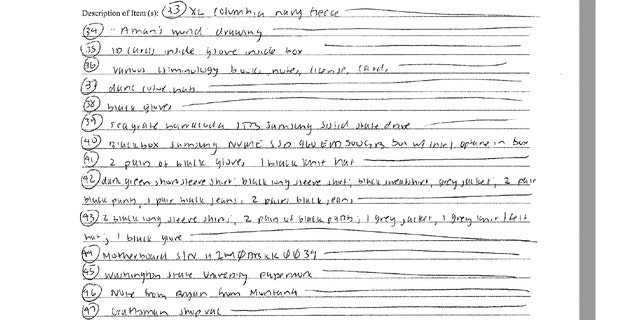 Description of Item (s): (33) XL Columbia navy fleece
(34) "A man's mind" drawing
(35) ID cards inside glove inside box
(36) various criminology books, notes, license, cards
(37) dark color hats
(38) black gloves
(39) Seagate barracuda 1TB Samsung solid state drive
(40) Black box Samsung NVME SSD 960 EVO 500GB box w/ intel optane in box
(41) 2 pair of black gloves, 1 black knit hat
(42) dark green short sleeve shirt; black long sleeve shirt; black sweatshirt, grey jacket, 2 pair
black pants, 1 pair black jeans, 2 pairs black jeans
(43) 2 black long sleeve shirts, 2 pair of black pants; 1 grey jacket, 1 grey knit / felt
hat, 1 black glove
(44) Motherboard S/N
(45) Washington State University paperwork
(46) Note from Bryan from Montana
(47) Craftsman shop vac